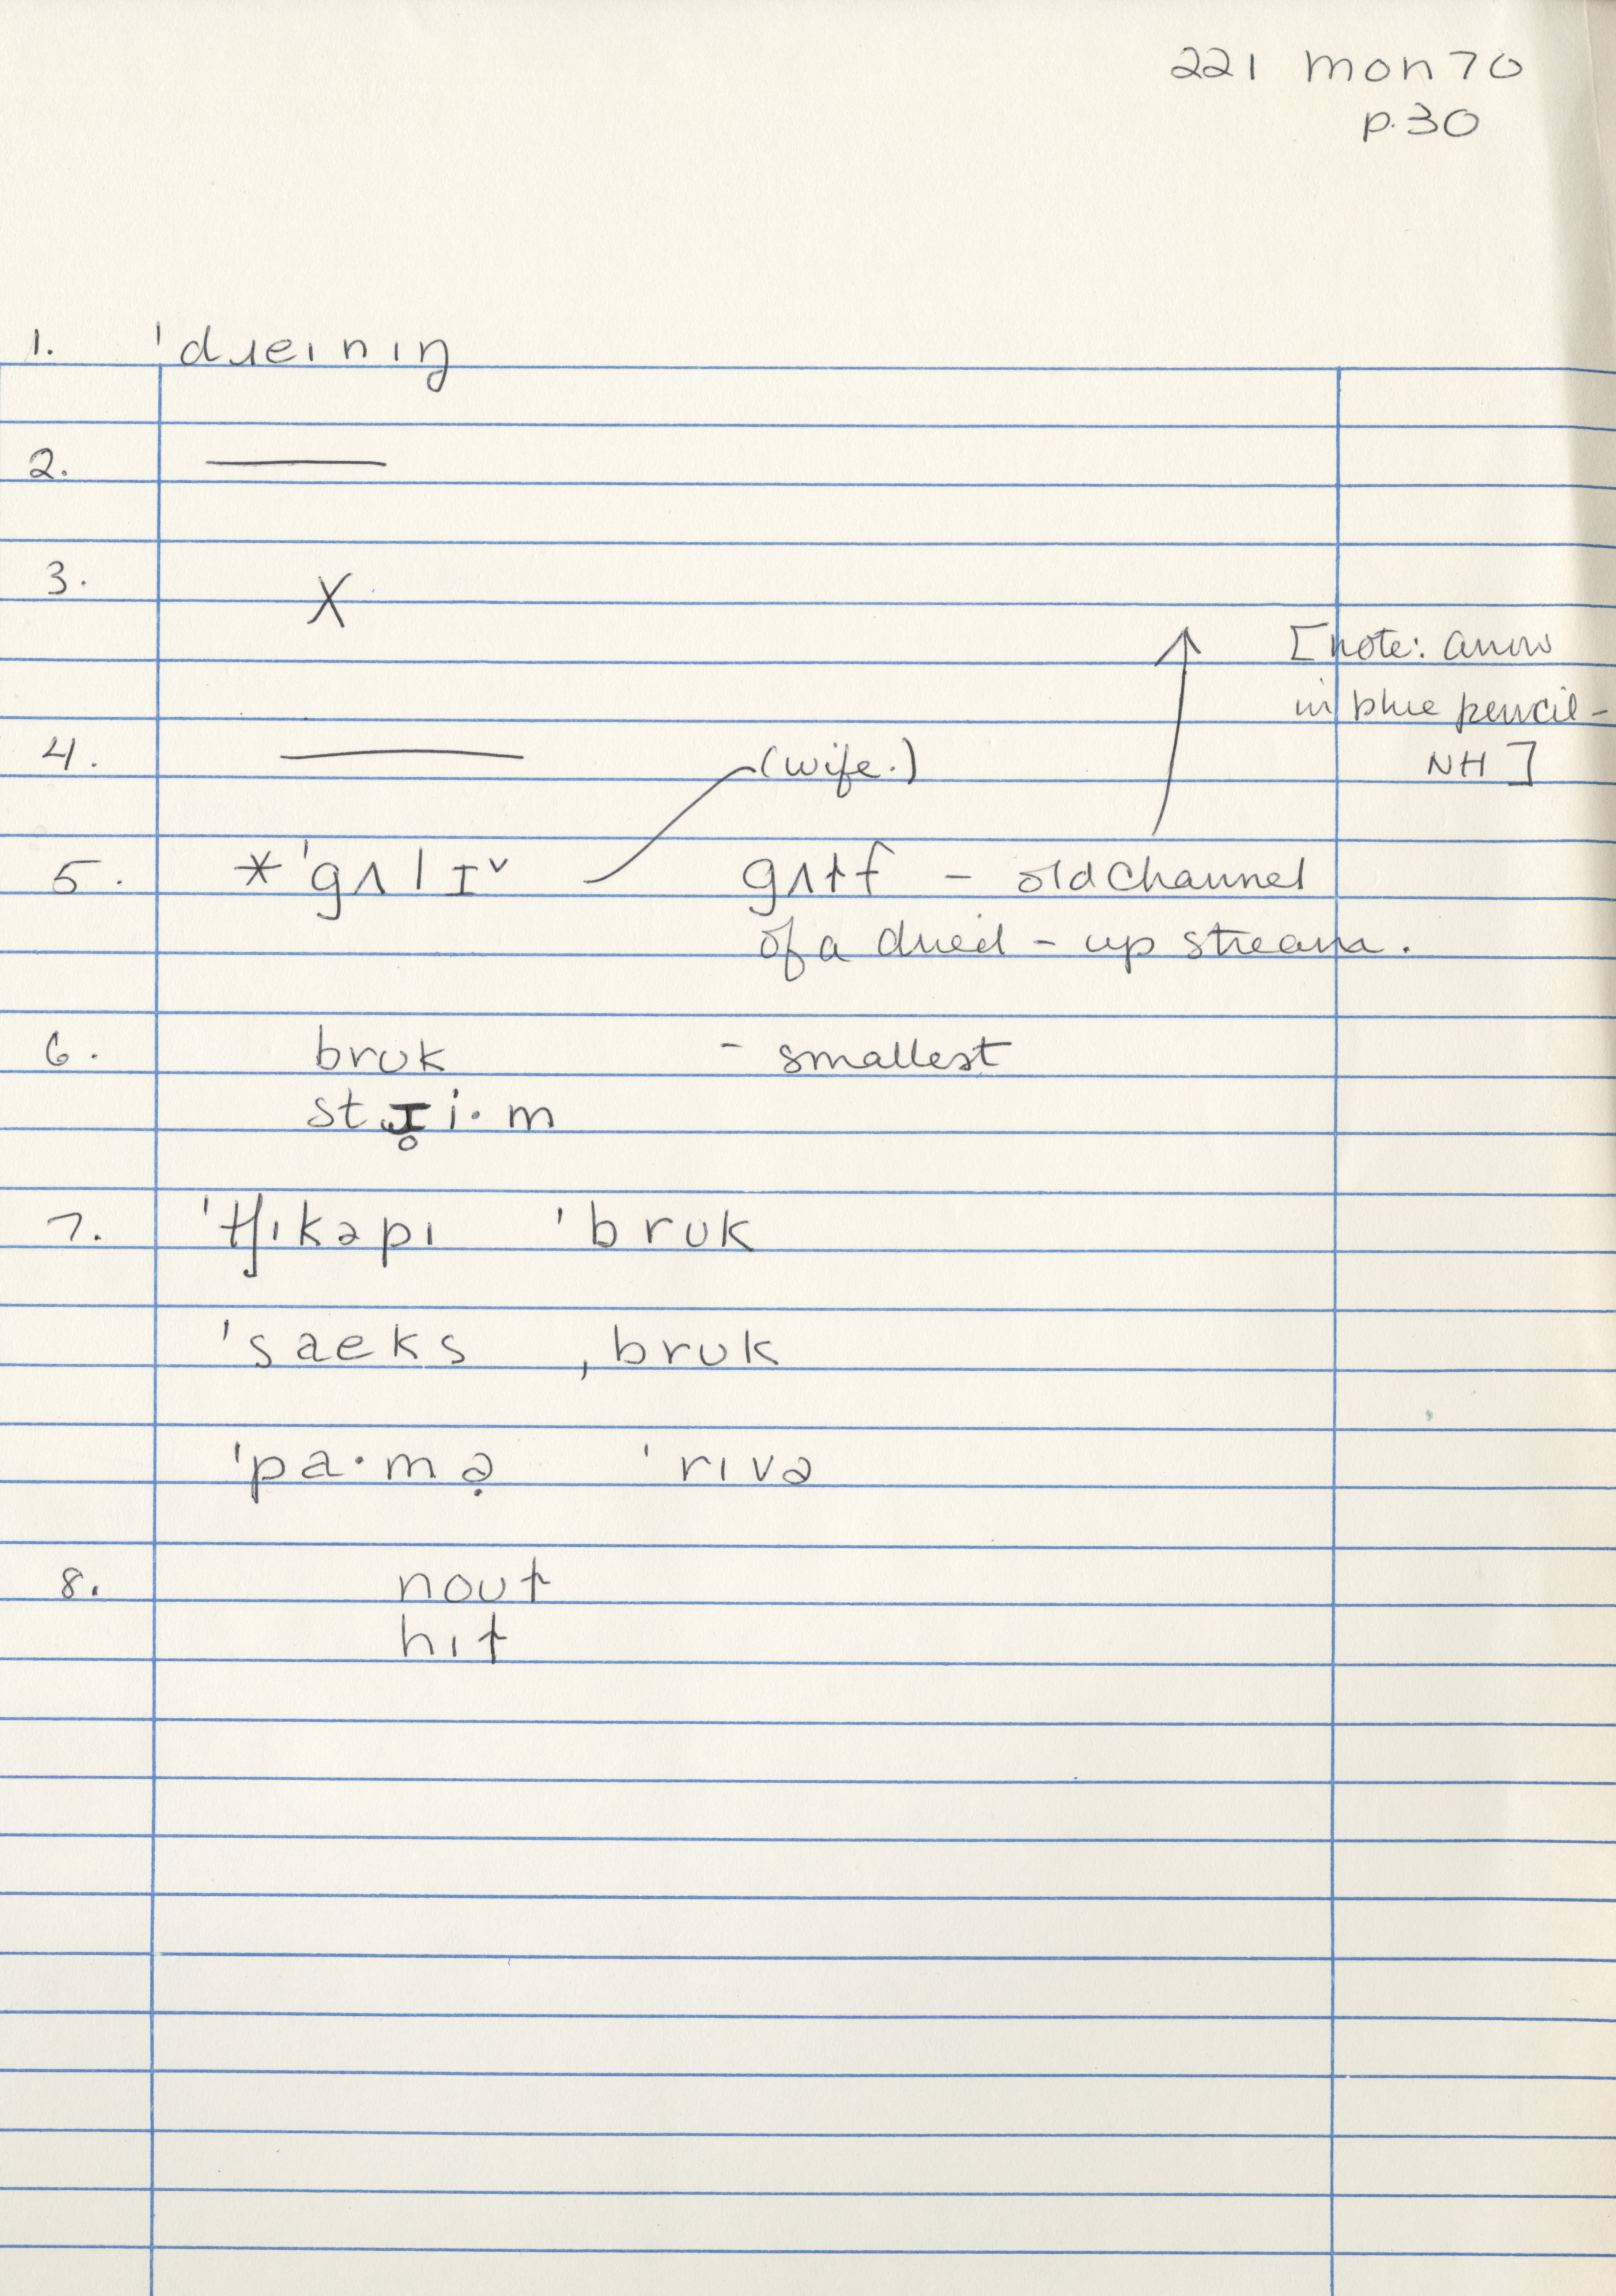 221 mon 70
p.30
1. ˈdɹeınıŋ
2. ———
3. X
[note: arrow
in blue pencil -
4. ——— (wife.) NH]
5. * ˈgʌlɪ˅ gʌɫf – old channel
of a dried - up stream.
6. brʊk – smallest
stɹ̥i·m
7. ˈʧıkəpı ˈbrʊk
ˈsaeks ˌbrʊk
ˈpa·mə̣ ˈrıvə
8. noʊɫ
hıɫ